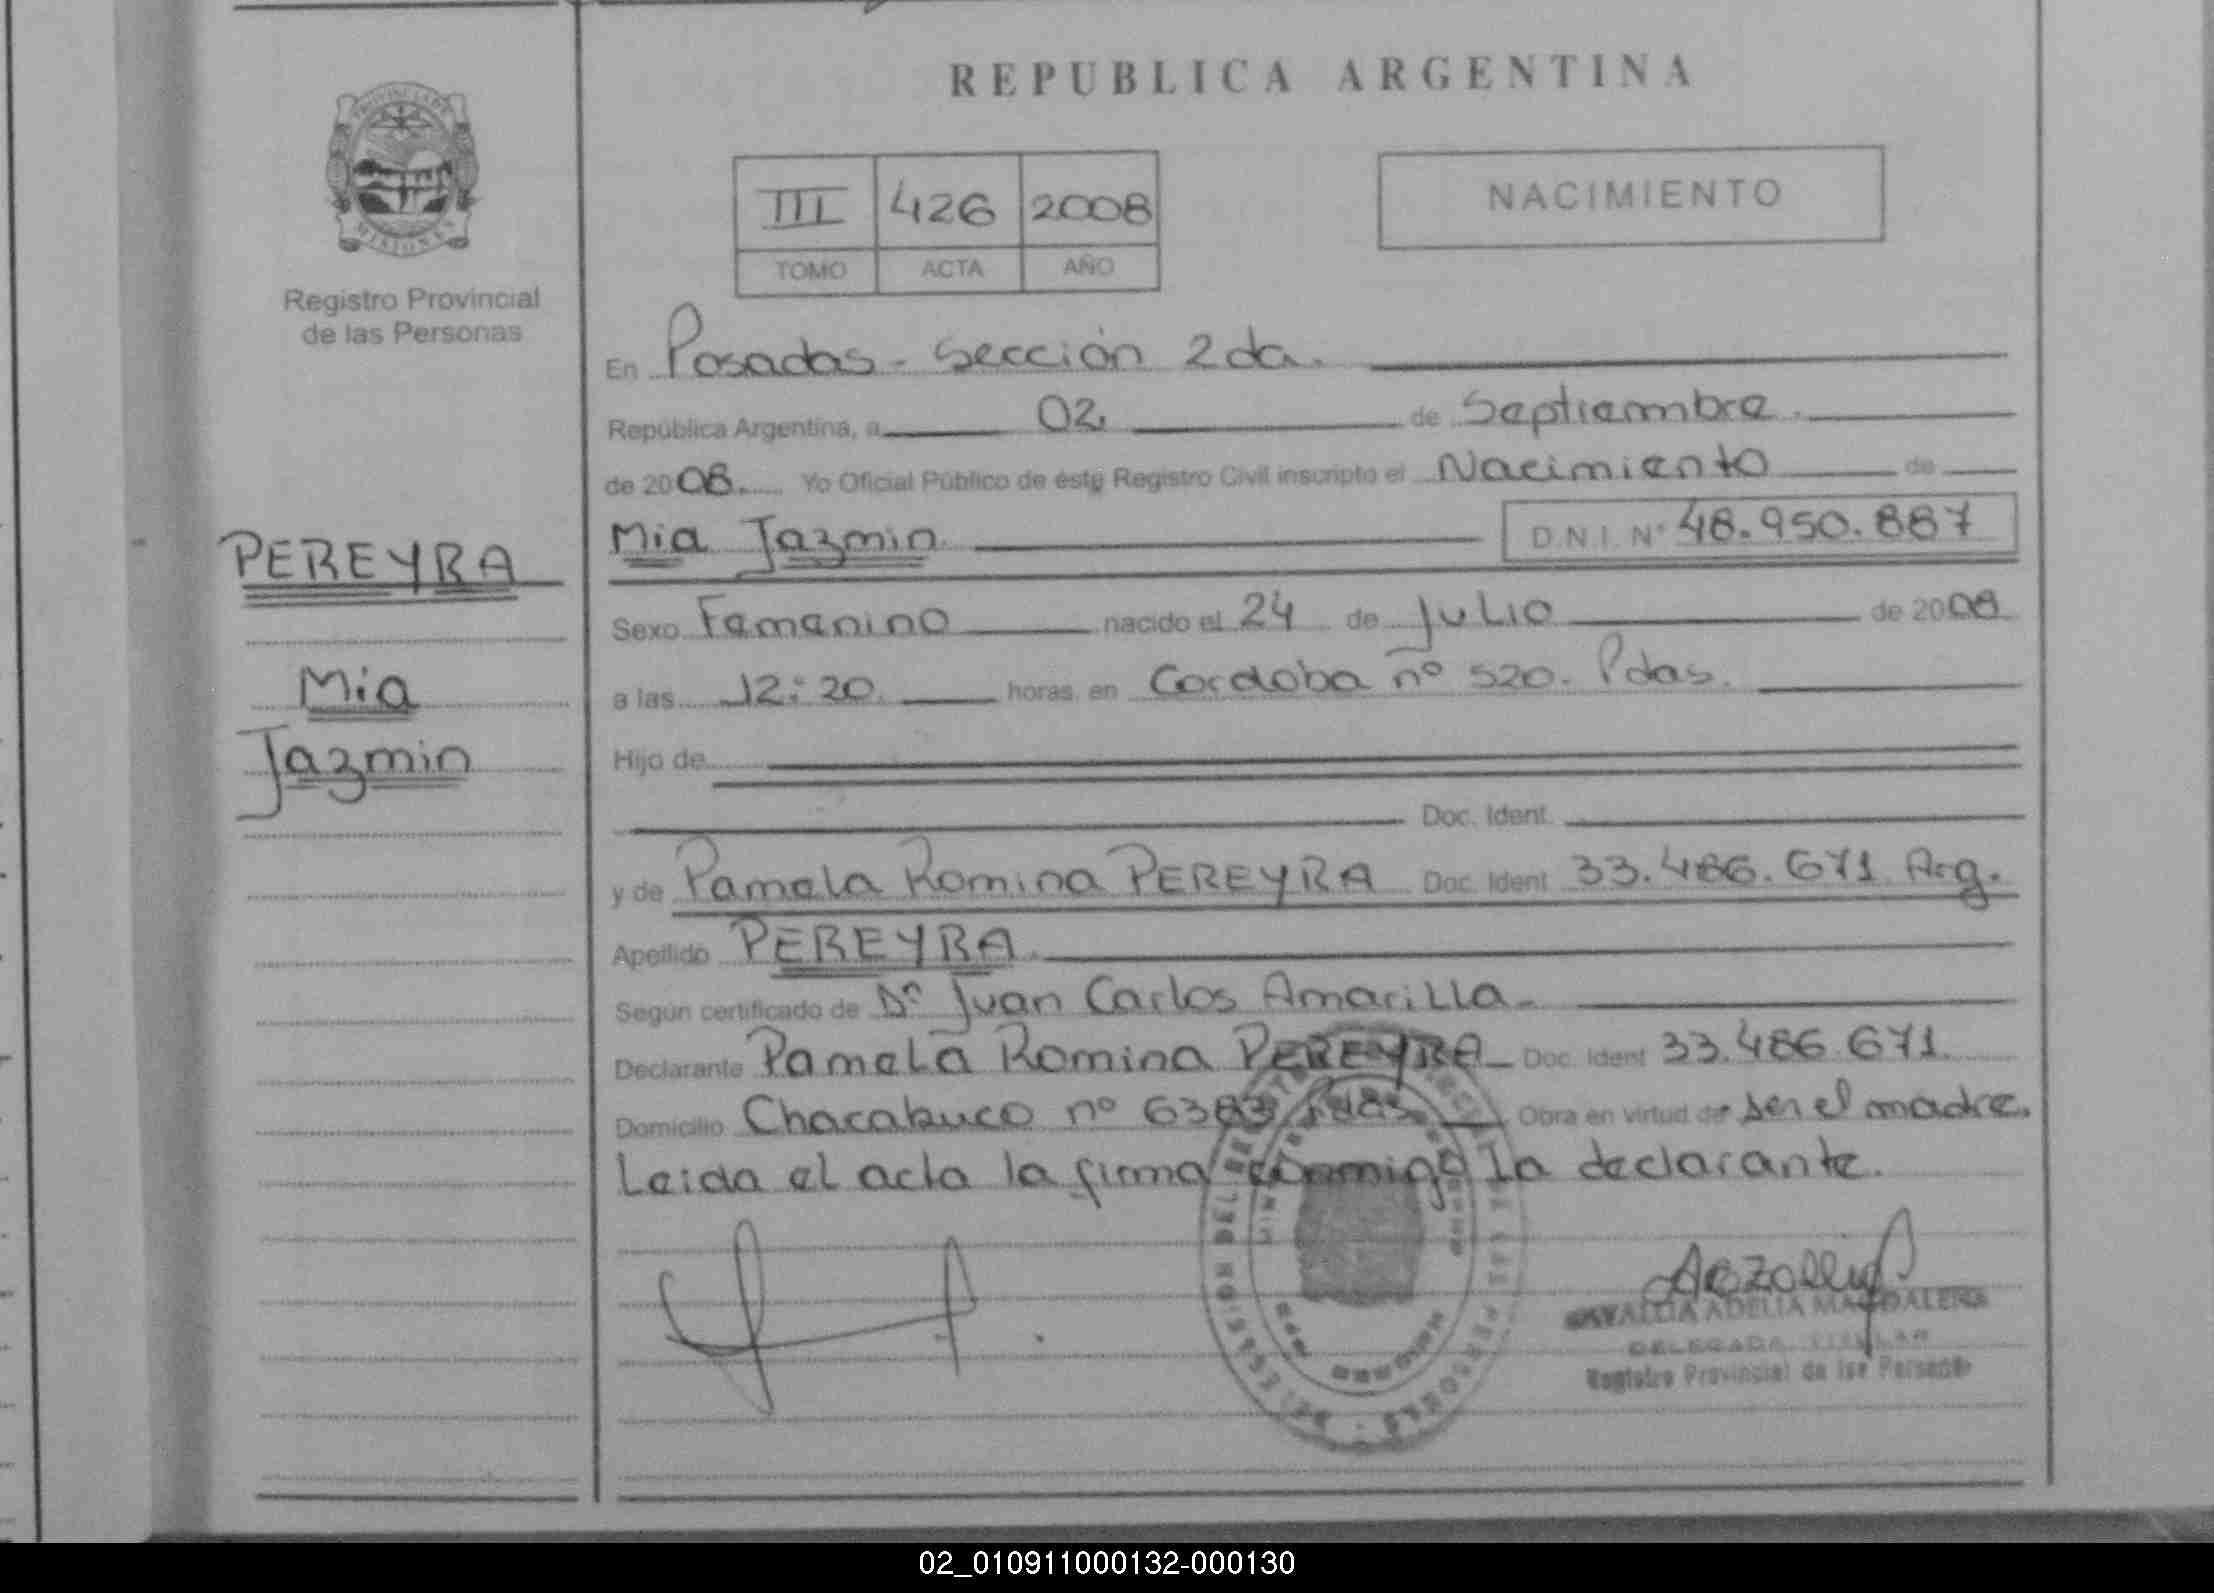 PROVINCIA DE
MISIONES
Registro Provincial
de las Personas
PEREYRA
Mia
Jazmin
REPUBLICA ARGENTINA
III 426 2008
TOMO ACTA AÑO
NACIMIENTO
En Posadas - Sección 2da.
República Argentina, a 02. de Septiembre.
de 2008. Yo Oficial Público de éste Registro Civil inscripto el Nacimiento de
Mia Jazmin D.N.I. Nº 48.950.887
Sexo Femenino nacido el 24 de Julio de 2008
a las 12:20. horas, en Cordoba nº 520. Pdas.
Hijo de
Doc. Ident.
y de Pamela Romina PEREYRA Doc. Ident 33.486.671 Arg.
Apellido PEREYRA.
Según certificado de Dr Juan Carlos Amarilla.
Declarante Pamela Romina PEREYRA Doc. Ident 33.486.671.
Domicilio Chacabuco nº 6383 Pdas. Obra en virtud de ser el madre.
Leida el acta la firma conmigo la declarante.
ADELIA MAGDALENA
DELEGADA TITULAR
Registro Provincial de las Personas
02_010911000132-000130